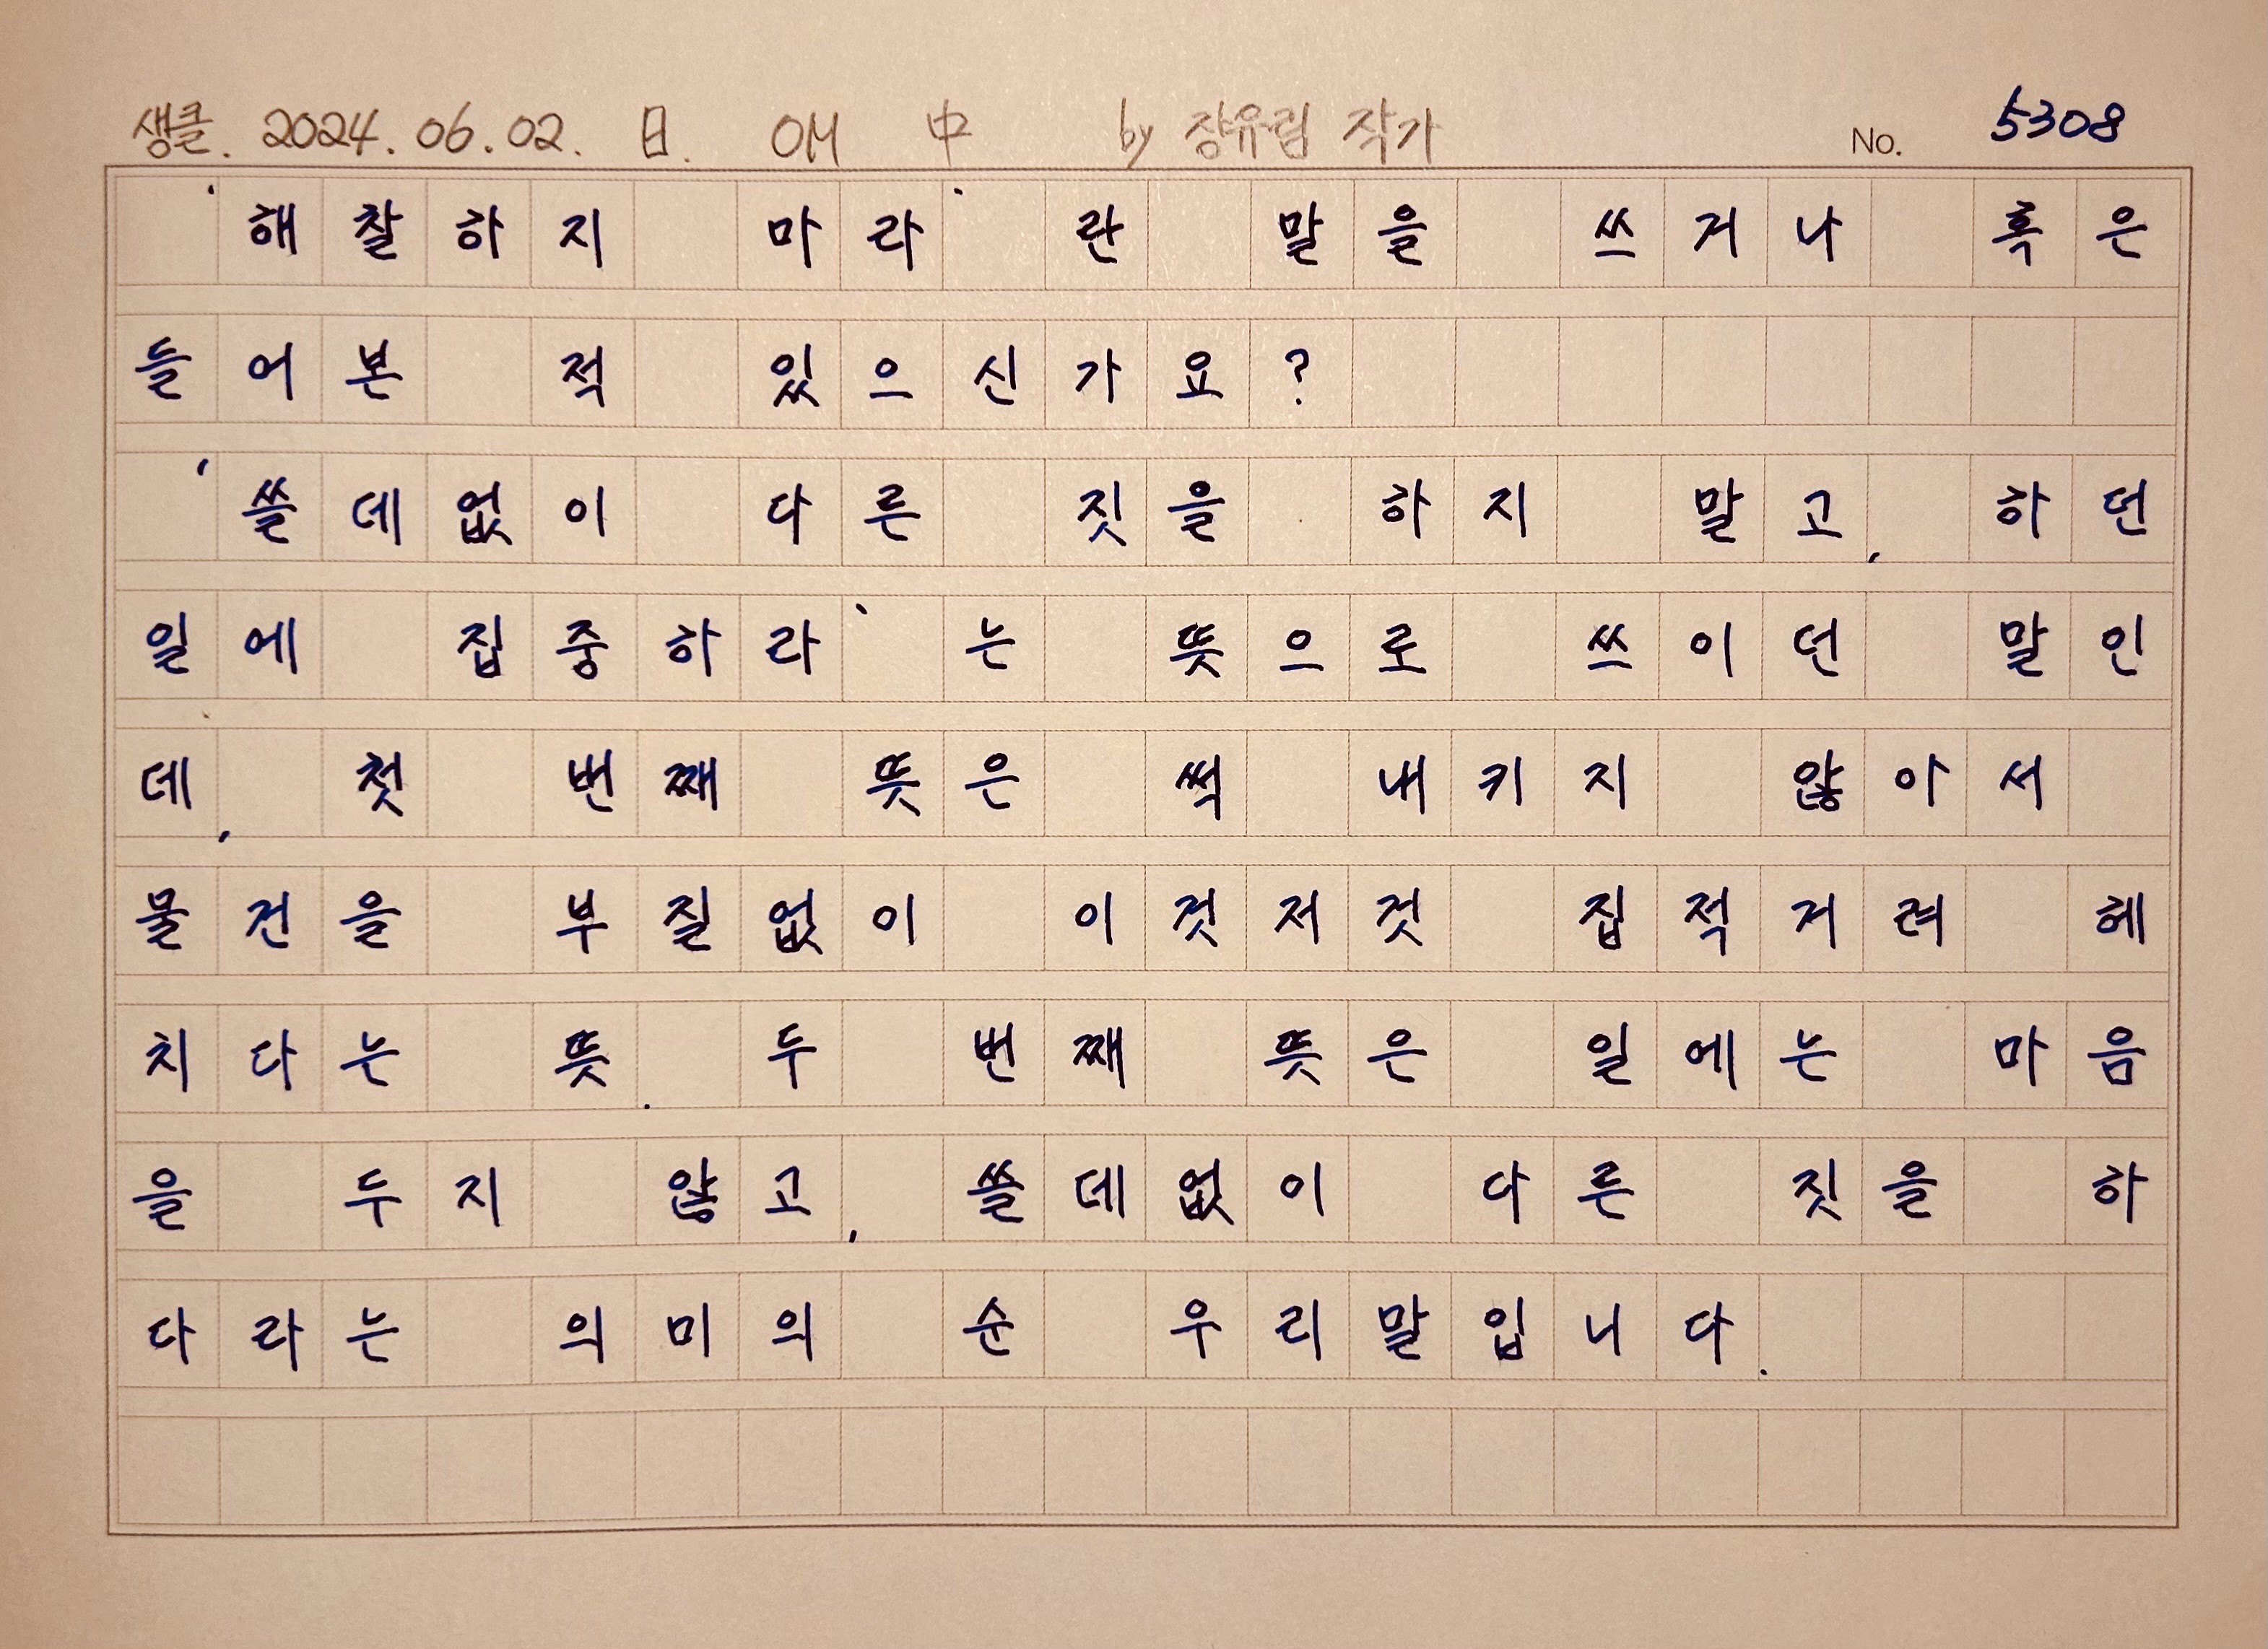 생클. 2024.06.02. 日. OM 中 by 장유림 작가 No. 5308
'해찰하지 마라'란 말을 쓰거나 혹은
들어본 적 있으신가요?
'쓸데없이 다른 짓을 하지 말고, 하던
일에 집중하라'는 뜻으로 쓰이던 말인
데, 첫 번째 뜻은 썩 내키지 않아서
물건을 부질없이 이것저것 집적거려 헤
치다는 뜻. 두 번째 뜻은 일에는 마음
을 두지 않고, 쓸데없이 다른 짓을 하
다라는 의미의 순 우리말입니다.